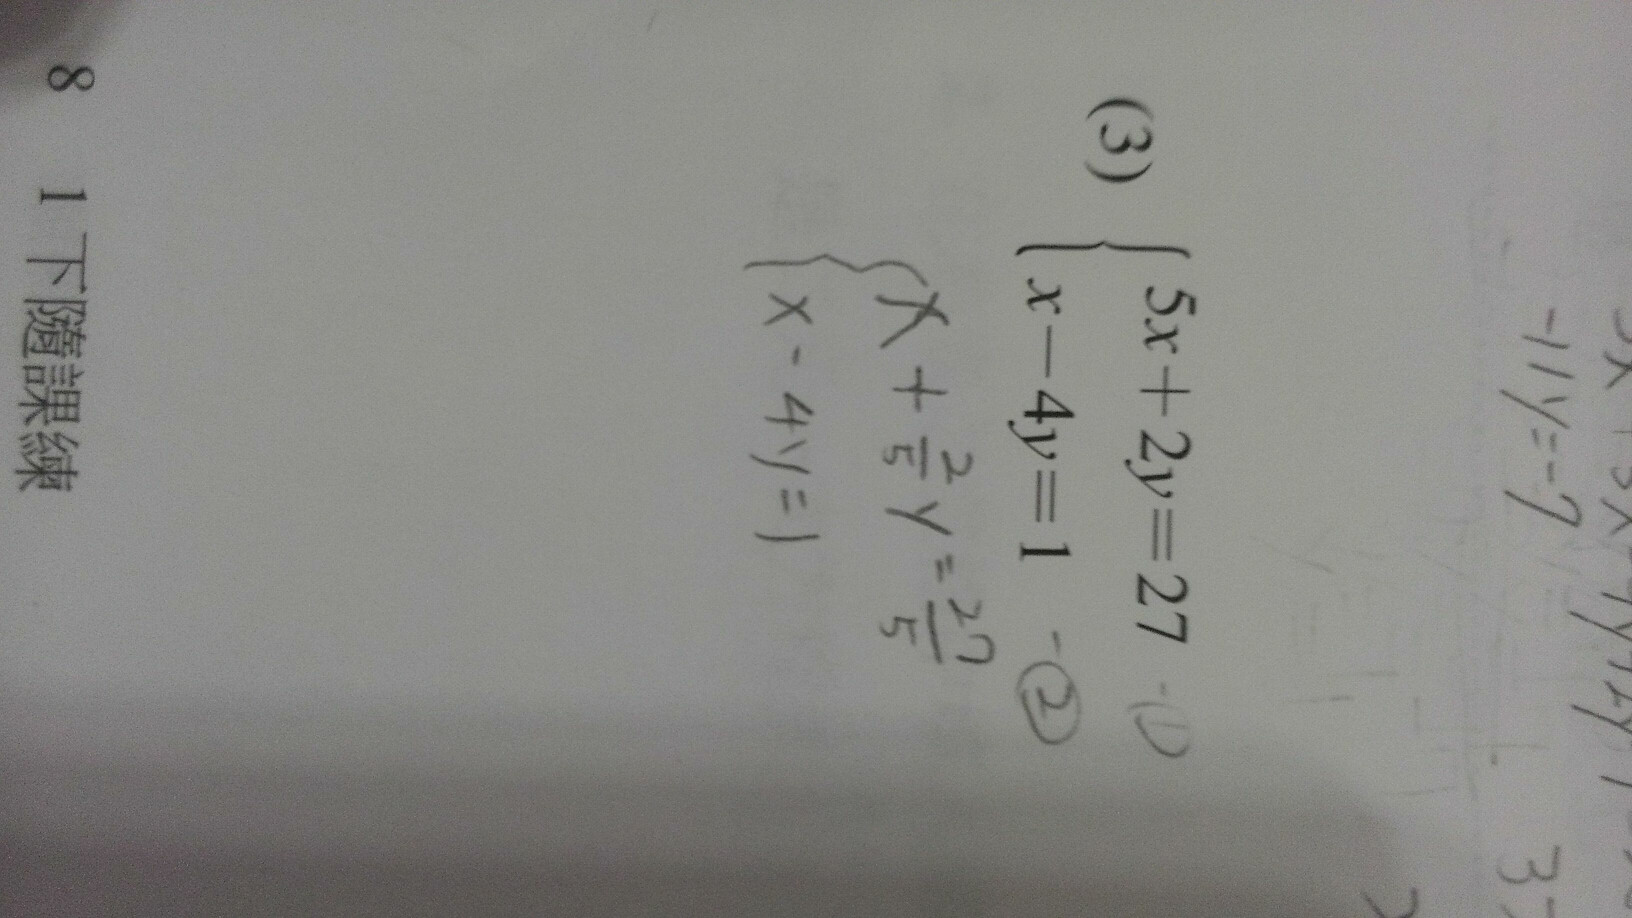 -11y=-7
(3) { 5x+2y=27 -①
x-4y=1 -②
{ x + 2/5 y = 27/5
x - 4y = 1
8 1下隨課練